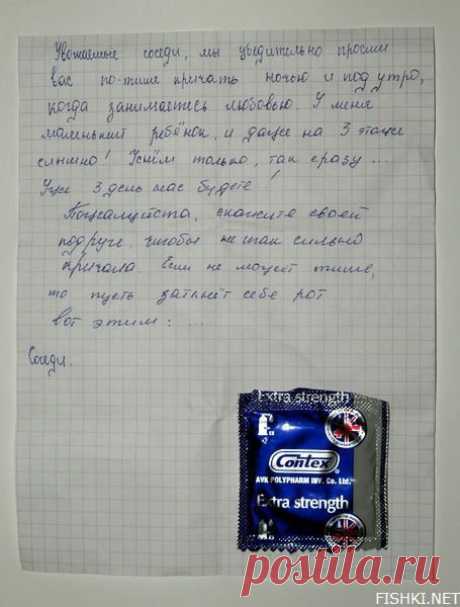 Уважаемые соседи, мы убедительно просим
вас по-тише кричать ночью и под утро,
когда занимаетесь любовью. У меня
маленький ребёнок, и даже на 3 этаже
слышно! Уснём только, так сразу ...
Уже 3 день нас будете!
Пожалуйста, скажите своей
подруге, чтобы не так сильно
кричала. Если не может тише,
то пусть заткнёт себе рот
вот этим: ...
Соседи.
Extra strength
Contex
AVK POLYPHARM INV. Co. Ltd.
Extra strength
postila.ru
FISHKI.NET